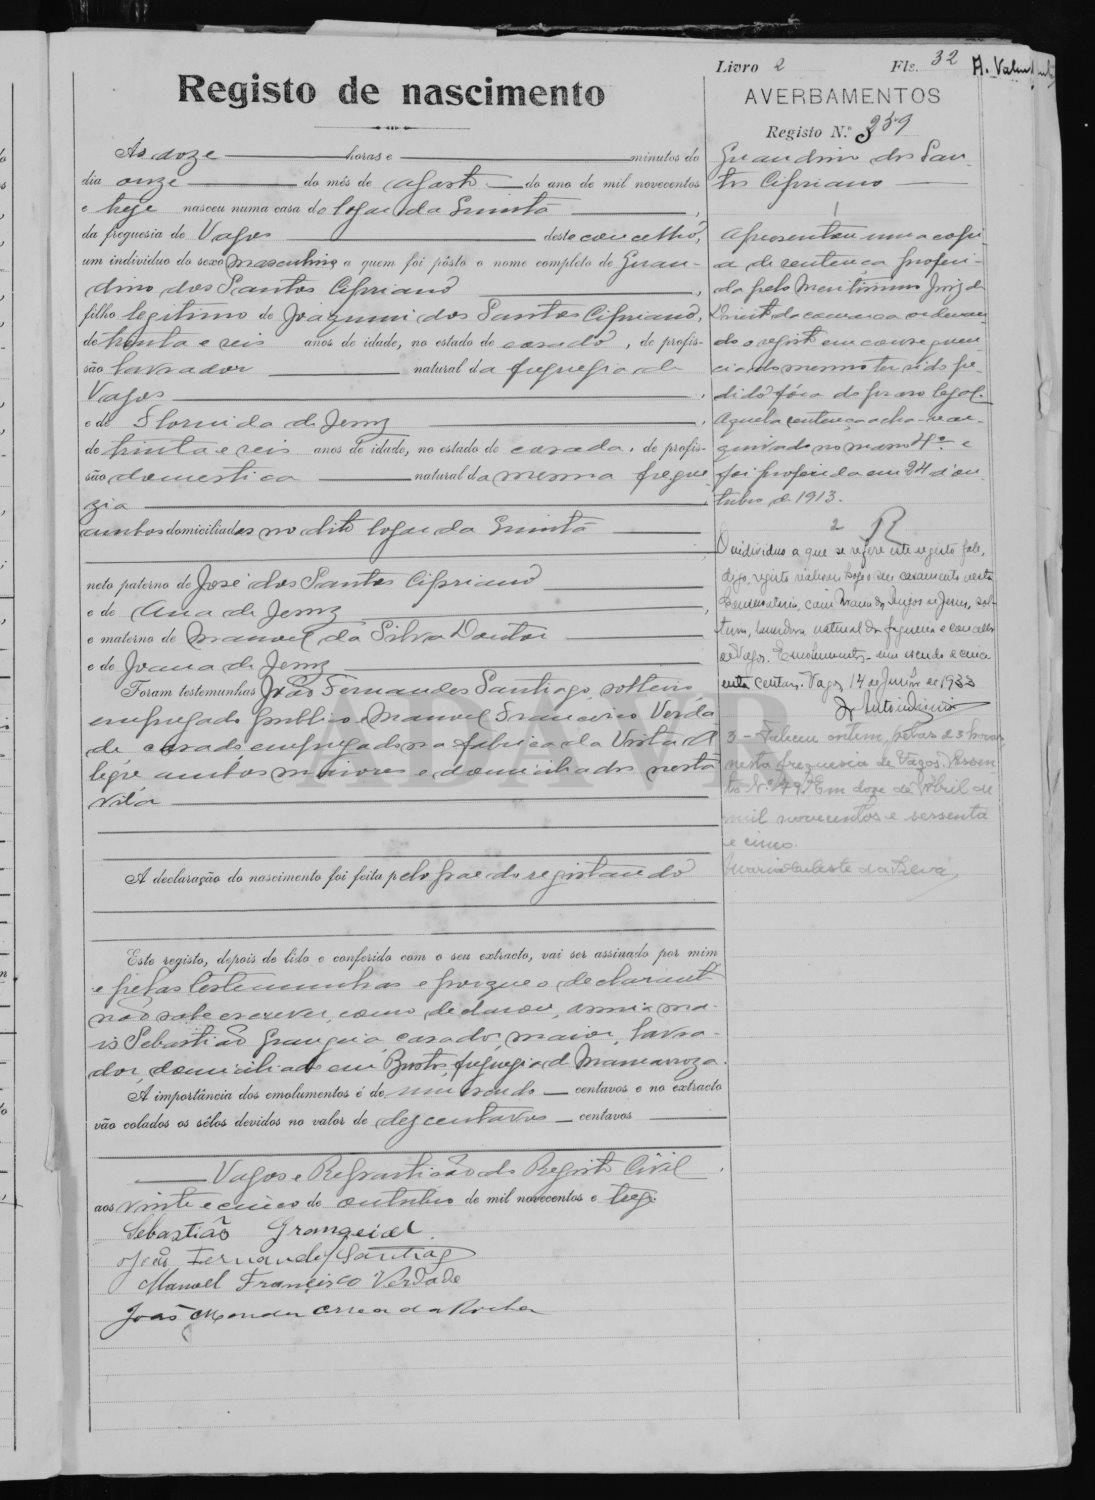 Livro 2 Fls. 32
Registo de nascimento
AVERBAMENTOS
Registo N.º 359
Ás doze horas e minutos do
dia onze do mês de agosto do ano de mil novecentos
e treze nasceu numa casa do logar da Quintã,
da freguesia de Vagos deste concelho,
um individuo do sexo masculino a quem foi pôsto o nome completo de Guan-
dino dos Santos Cipriano,
filho legitimo de Joaquim dos Santos Cipriano,
de trinta e seis anos de idade, no estado de casado, de profis-
são lavrador natural da freguezia de
Vagos,
e de Florinda de Jesus,
de trinta e seis anos de idade, no estado de casada, de profis-
são domestica natural da mesma fregue
zia
ambos domiciliados no dito logar da Quintã
neto paterno de José dos Santos Cipriano
e de Ana de Jesus,
e materno de Manoel da Silva Doutor
e de Joana de Jesus
Foram testemunhas João Fernandes Santiago, solteiro
empregado publico e Manoel Francisco Verda
de casado, empregado na fabrica da Vista A
legre ambos maiores e domiciliados nesta
vila
A declaração do nascimento foi feita pelo pae do registando
Este registo, depois de lido e conferido com o seu extracto, vai ser assinado por mim
e pelas testemunhas e porque o declarante
não sabe escrever, como declarou, assina ma-
is Sebastião Grangeia, casado, maior, lavra-
dor, domiciliado em Bustos, freguezia de Mamarroza.
A importância dos emolumentos é de um escudo centavos e no extracto
vão colados os sêlos devidos no valor de dez centavos centavos
Vagos e Repartição do Registo Civil,
aos vinte e cinco de outubro de mil novecentos e treze
Sebastião Grangeia
João Fernandes Santiago
Manoel Francisco Verdade
João Mendes Correa da Rocha
Guandino dos San-
tos Cipriano
1
Apresentou uma copi-
a de sentença proferi-
da pelo Meritissimo Juiz de
Direito da comarca ordenan-
do o registo em consequen-
cia do mesmo ter sido pe-
dido fóra do praso legal.
Aquela sentença acha-se ar-
quivada no maço 4º e
foi proferida em 24 d'ou-
tubro de 1913.
2
O individuo a que se refere este registo
casamento nesta
Conservatoria, com Maria de Jesus, sol-
teira, natural da freguesia e concelho
de Vagos. Emolumentos - um escudo e cinco
enta centavos. Vagos, 14 de de 1933
3 - Faleceu ontem, pelas 23 horas,
nesta freguesia de Vagos. Assen-
to Nº 49. Em doze de Abril de
mil novecentos e sessenta
e cinco.
Maria Celeste da Silva
ADAVR